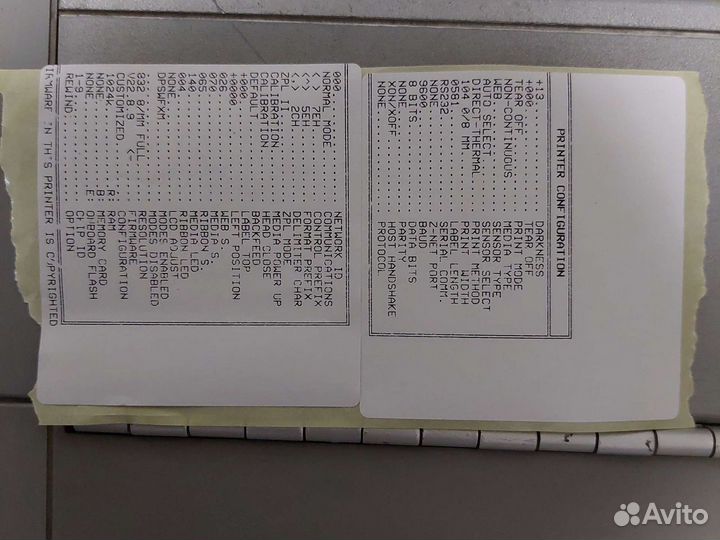 PRINTER CONFIGURATION
+13.............. DARKNESS
+000............. TEAR OFF
TEAR OFF......... PRINT MODE
NON-CONTINUOUS... MEDIA TYPE
WEB.............. SENSOR TYPE
AUTO SELECT...... SENSOR SELECT
DIRECT-THERMAL... PRINT METHOD
104 0/8 MM....... PRINT WIDTH
0581............. LABEL LENGTH
RS232............ SERIAL COMM.
NONE............. Z-NET PORT
9600............. BAUD
8 BITS........... DATA BITS
NONE............. PARITY
XON/XOFF......... HOST HANDSHAKE
NONE............. PROTOCOL
000.............. NETWORK ID
NORMAL MODE...... COMMUNICATIONS
<~> 7EH.......... CONTROL PREFIX
<^> 5EH.......... FORMAT PREFIX
<,> 2CH.......... DELIMITER CHAR
ZPL II........... ZPL MODE
CALIBRATION...... MEDIA POWER UP
CALIBRATION...... HEAD CLOSE
DEFAULT.......... BACKFEED
+000............. LABEL TOP
+0000............ LEFT POSITION
026.............. WEB S.
MEDIA S.
065.............. RIBBON S.
140.............. MEDIA LED
004.............. RIBBON LED
LCD ADJUST
DPSWFXM.......... MODES ENABLED
NONE............. MODES DISABLED
832 8/MM FULL.... RESOLUTION
V22.8.9 <-....... FIRMWARE
CUSTOMIZED....... CONFIGURATION
1024k............ R: RAM
NONE............. B: MEMORY CARD
NONE............. E: ONBOARD FLASH
1-9.............. CLIP ID
REWIND........... OPTION
IRMWARE IN THIS PRINTER IS COPYRIGHTED
Avito